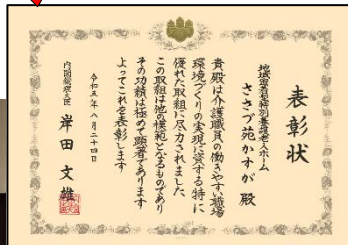 表彰状
地域密着型特別養護老人ホーム
ささづ苑かすが 殿
貴殿は介護職員の働きやすい職場
環境づくりの実現に資する特に
優れた取組に尽力されました
この取組は他の模範となるものであり
その功績は極めて顕著であります
よってこれを表彰します
令和五年八月二十四日
内閣総理大臣 岸田 文雄